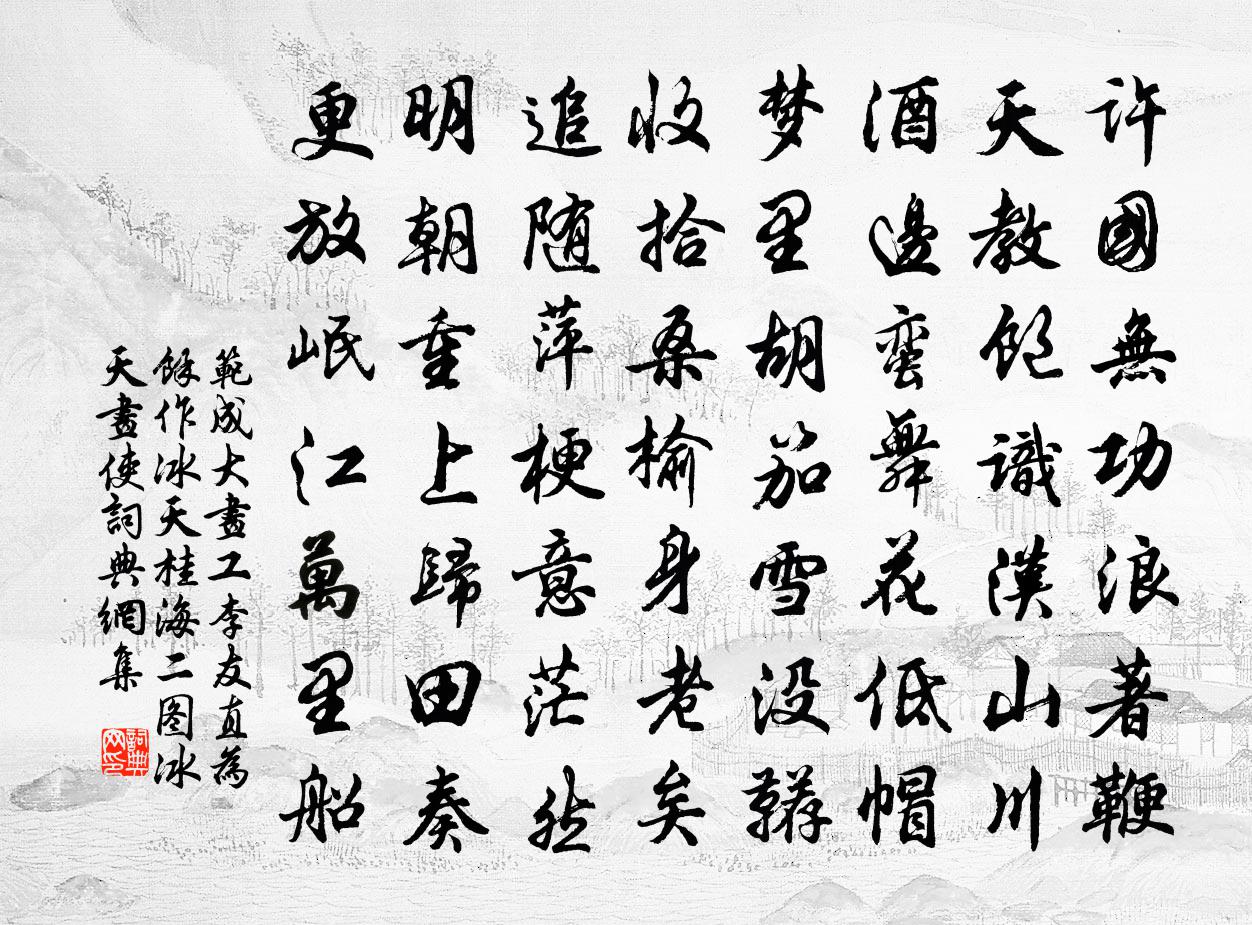 许國無功浪著鞭
天教飽識漢山川
酒邊蠻舞花低帽
梦里胡笳雪没韉
收拾桑榆身老矣
追随萍梗意茫然
明朝重上歸田奏
更放岷江萬里船
範成大畫工李友直為
餘作冰天桂海二图冰
天畫使詞典網集
詞典网印